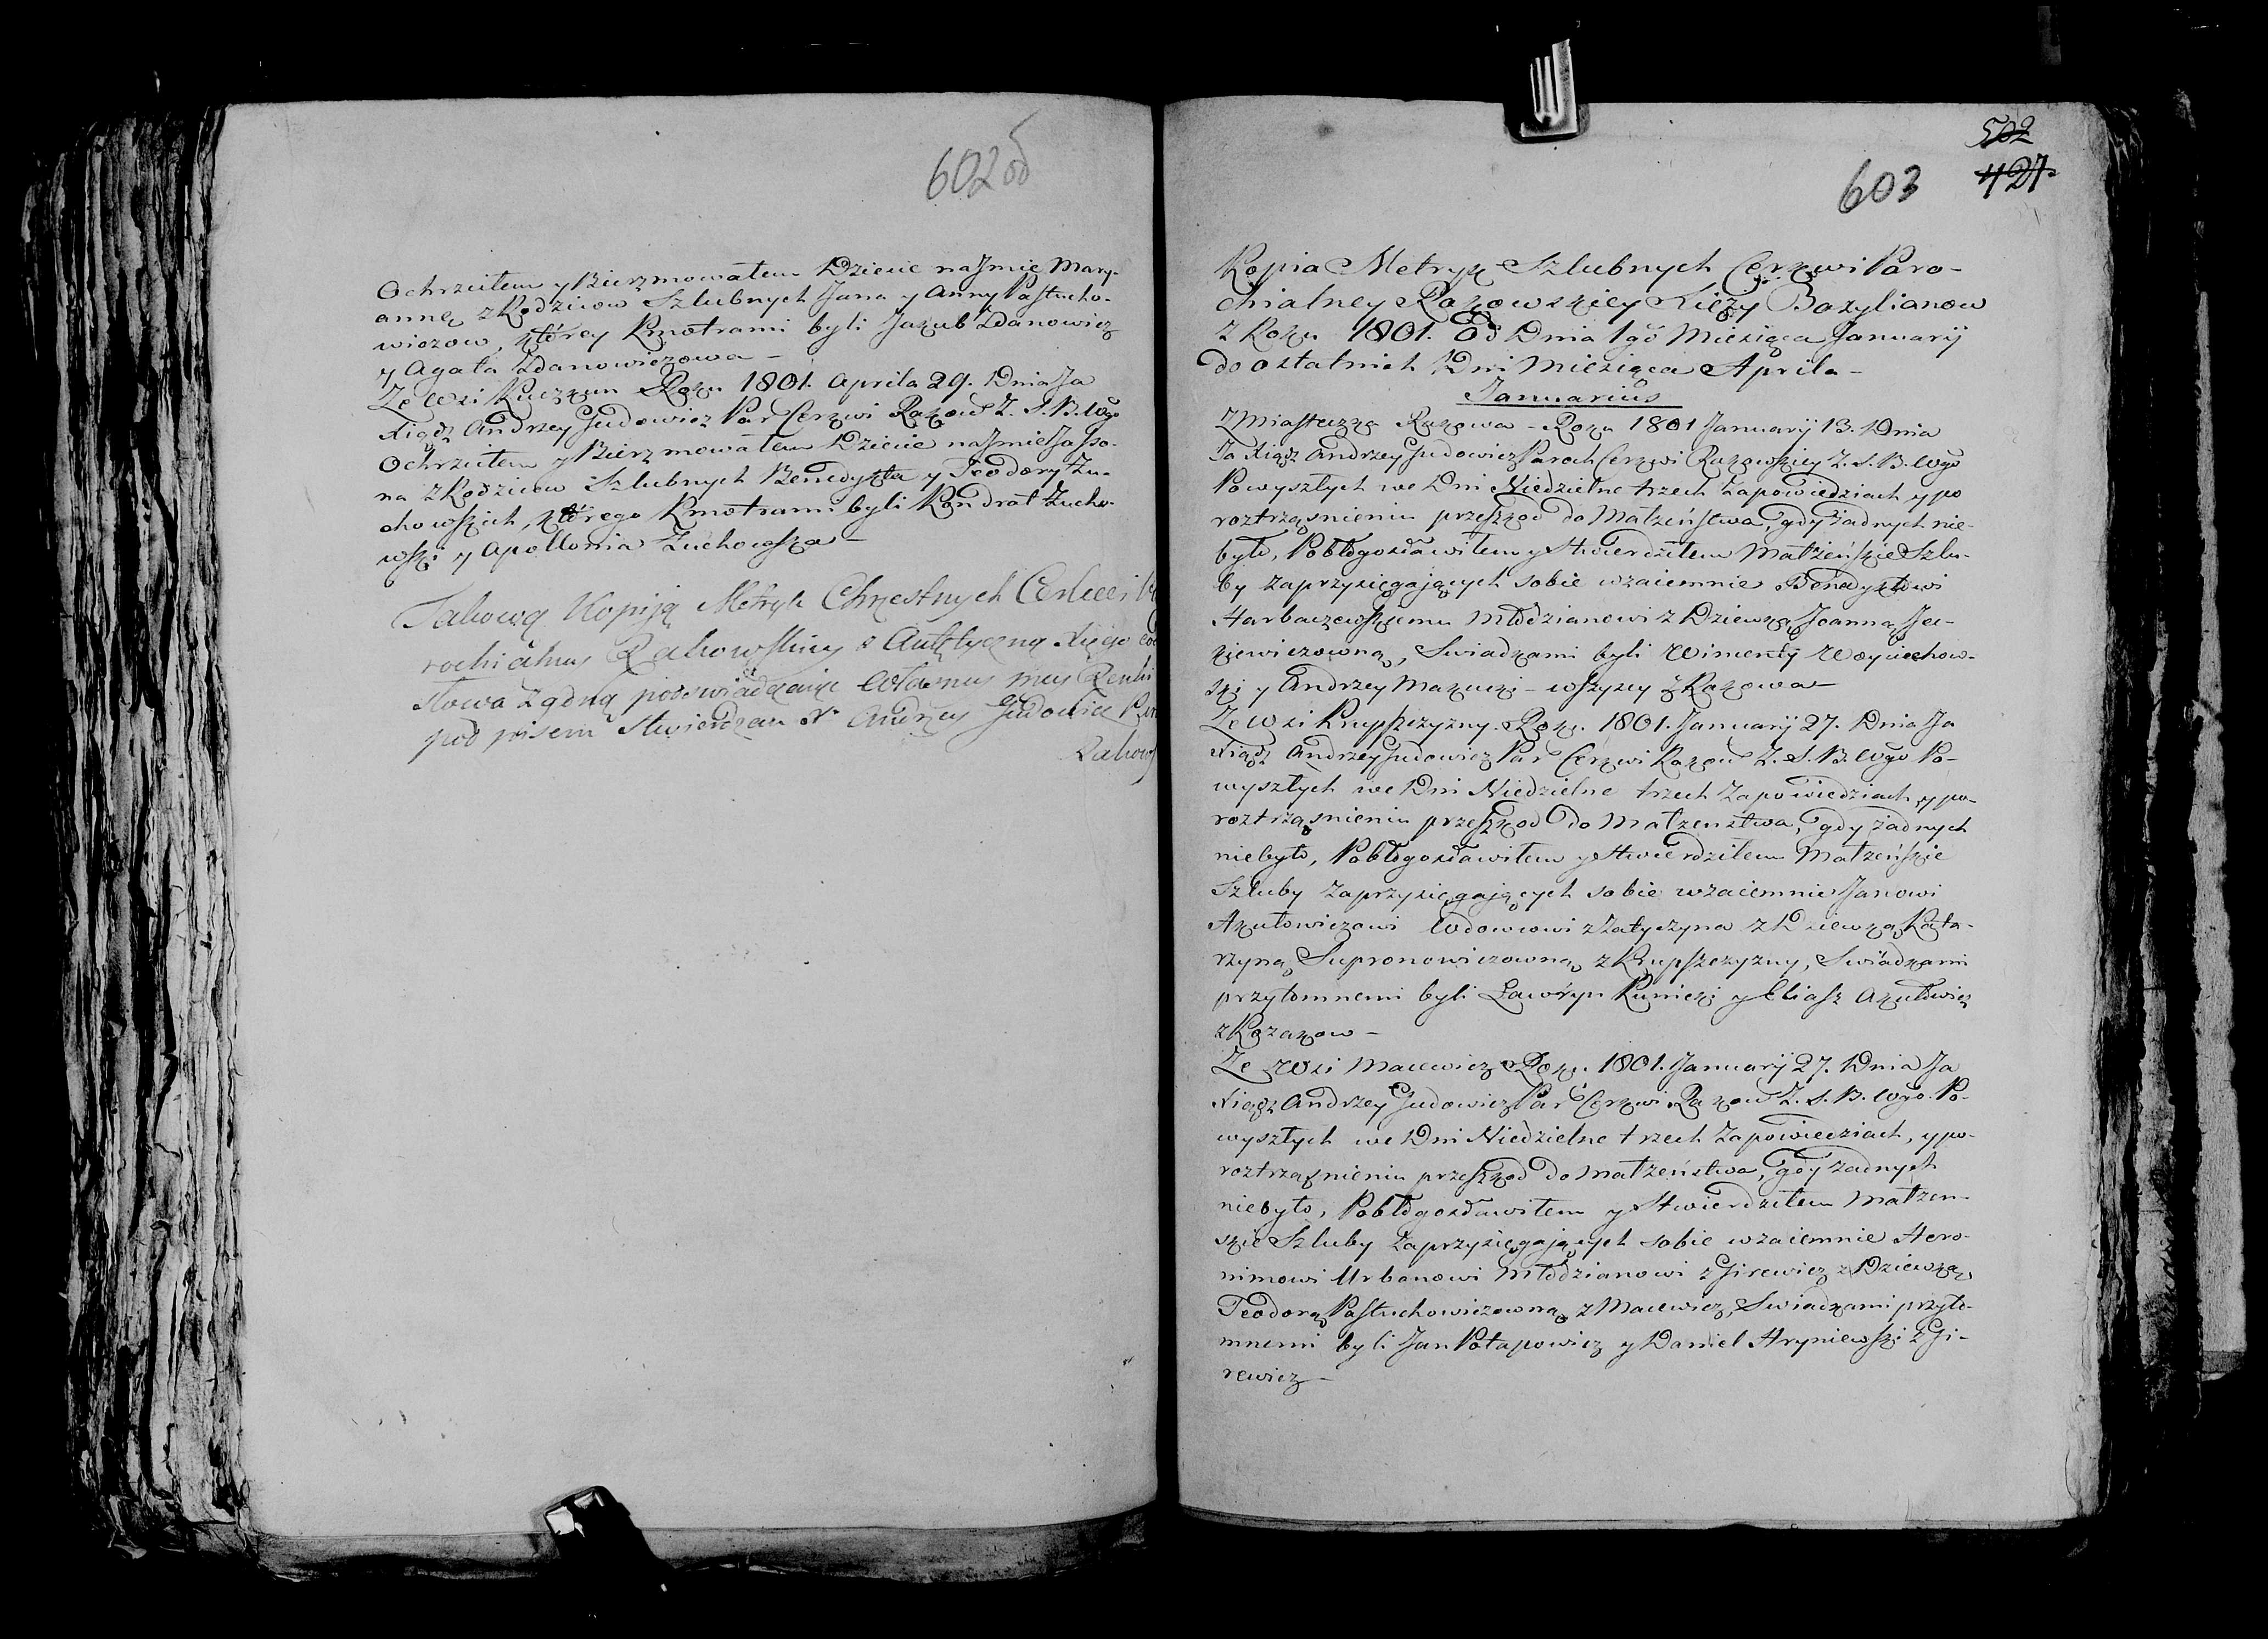 602 об
Ochrzciłem y Bierzmowałem Dziecie na Jmie Mary-
annę z Rodzicow Szlubnych Jana y Anny Pastucho-
wiczow, ktorey Kmotrami byli Jakub Zdanowicz
y Agata Zdanowiczowa –
Ze Wsi Kuczkun Roku 1801. Aprila 29. Dnia Ja
Xiądz Andrzey Judowicz Par Cerkwi Rakow Z. S. B. Wgo
Ochrzciłem y Bierzmowałem Dziecie na Jmie Jaso-
na z Rodzicow Szlubnych Benedykta y Teodory Żu-
chowskich, ktorego Kmotrami byli Kondrat Żucho-
wski y Apollonia Żuchowska –
Takową Kopiją Metryk Chrzestnych Cerkwi
rochialney Rakowskiey z Autentyczną Xięgą
słowa zgodną poswiadczając Własney mey Renki
pod pisem stwierdzam X Andrzey Judowicz
Rakow
502
427
603
Kopia Metryk Szlubnych Cerkwi Paro-
chialney Rakowskiey Xięży Bazylianow
z Roku 1801. Od Dnia 1go Miesiąca Januarij
do ostatnich Dni Miesiąca Aprila –
Januarius
Z Miasteczka Rakowa – Roku 1801 Januarij 13. Dnia
Ja Xiądz Andrzey Judowicz Paroch Cerkwi Rakowskiey Z. S. B. Wgo
Po wyszłych we Dni Niedzielne trzech Zapowiedziach, y po
roztrząsnieniu przeszkod do Małżeństwa, gdy żadnych nie-
było, Pobłogosławiłem y Stwierdziłem Małżeńskie Szlu-
by zaprzysięgających sobie wzaiemnie Benedyktowi
Harbaczewskiemu Młodzianowi z Dziewką Joanną Jac-
kiewiczowną, Swiadkami byli Wimenty Woyciechow-
ski y Andrzey Makucki – wszyscy z Rakowa –
Ze Wsi Krupszczyzny. Roku. 1801. Januarij 27. Dnia Ja
Xiądz Andrzey Judowicz Par Cerkwi Rakow Z. S. B. Wgo Po-
wyszłych we Dni Niedzielne trzech Zapowiedziach, y po-
roztrząsnieniu przeszkod do Małzenstwa, gdy żadnych
niebyło, Pobłogosławiłem y Stwierdziłem Małżeńskie
Szluby zaprzysięgających sobie wzaiemnie Janowi
Akułowiczowi Wdowcowi z Zatyczyna z Dziewką Kata-
rzyną Supronowiczowną z Krupszczyzny, Swiadkami
przytomnemi byli Ławryn Kunicki y Eliasz Akułowicz
z Kozakow –
Ze Wsi Macewicz Roku. 1801. Januarij 27. Dnia Ja
Xiądz Andrzey Judowicz Par Cerkwi Rakow Z. S. B. Wgo. Po-
wyszłych we Dni Niedzielne trzech Zapowiedziach, y po-
roztrząsnieniu przeszkod do Małżeństwa, gdy żadnych
niebyło, Pobłogosławiłem y Stwierdziłem Małżen-
skie Szluby zaprzysięgających sobie wzaiemnie Hero-
nimowi Urbanowi Młodzianowi z Girewicz z Dziewką
Teodorą Pastuchowiczowną z Macewicz, Swiadkami przyto-
mnemi byli Jan Potapowicz y Daniel Hryniewski z Gi-
rewicz –